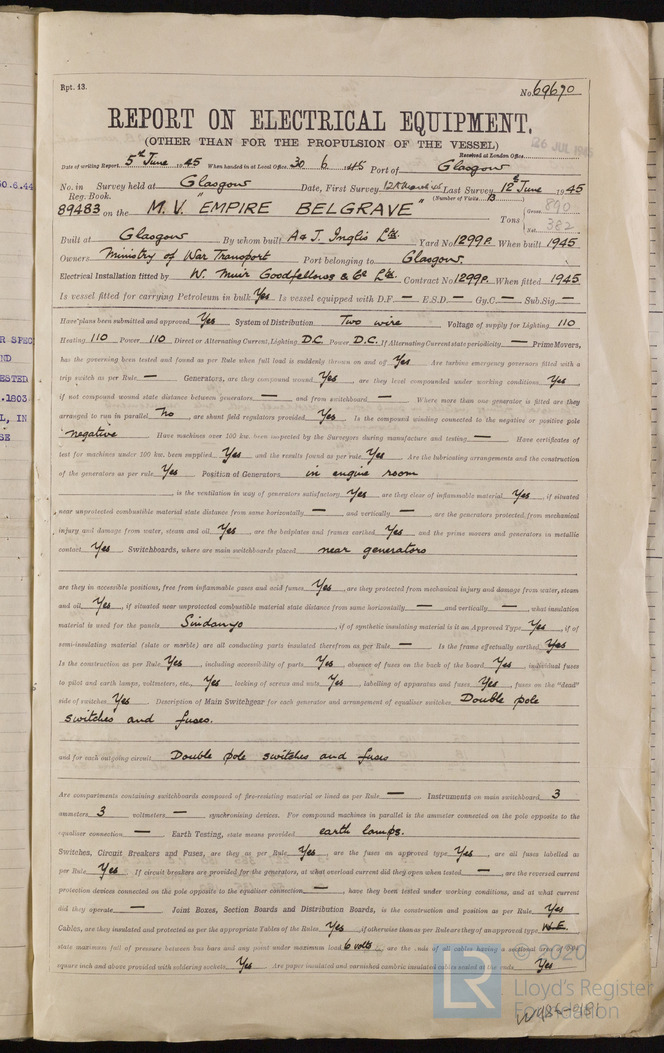 Rpt. 13.
No. 69690
REPORT ON ELECTRICAL EQUIPMENT.
(OTHER THAN FOR THE PROPULSION OF THE VESSEL)
26 JUL 1945
Received at London Office
Date of writing Report 5th June 1945 When handed in at Local Office 30 6 1945 Port of Glasgow
No. in Survey held at Glasgow Date, First Survey 12th Last Survey 12th June 1945
Reg. Book. (Number of Visits 13)
89483 on the M.V. "EMPIRE BELGRAVE" Tons Gross 890
Net 382
Built at Glasgow By whom built A & J. Inglis Ltd. Yard No. 1299P. When built 1945
Owners Ministry of War Transport Port belonging to Glasgow
Electrical Installation fitted by W. Muir Goodfellows & Co Ltd. Contract No. 1299P. When fitted 1945
Is vessel fitted for carrying Petroleum in bulk Yes Is vessel equipped with D.F. — E.S.D. — Gy.C. — Sub.Sig. —
Have plans been submitted and approved Yes System of Distribution Two wire Voltage of supply for Lighting 110
Heating 110 Power 110 Direct or Alternating Current, Lighting D.C. Power D.C. If Alternating Current state periodicity — Prime Movers,
has the governing been tested and found as per Rule when full load is suddenly thrown on and off Yes Are turbine emergency governors fitted with a
trip switch as per Rule — Generators, are they compound wound Yes, are they level compounded under working conditions Yes,
if not compound wound state distance between generators — and from switchboard — Where more than one generator is fitted are they
arranged to run in parallel no, are shunt field regulators provided Yes Is the compound winding connected to the negative or positive pole
negative Have machines over 100 kw. been inspected by the Surveyors during manufacture and testing — Have certificates of
test for machines under 100 kw. been supplied Yes and the results found as per rule Yes Are the lubricating arrangements and the construction
of the generators as per rule Yes Position of Generators in engine room
, is the ventilation in way of generators satisfactory Yes are they clear of inflammable material Yes, if situated
near unprotected combustible material state distance from same horizontally — and vertically —, are the generators protected from mechanical
injury and damage from water, steam and oil Yes, are the bedplates and frames earthed Yes and the prime movers and generators in metallic
contact Yes Switchboards, where are main switchboards placed near generators
are they in accessible positions, free from inflammable gases and acid fumes Yes, are they protected from mechanical injury and damage from water, steam
and oil Yes, if situated near unprotected combustible material state distance from same horizontally — and vertically —, what insulation
material is used for the panels Sindanyo, if of synthetic insulating material is it an Approved Type Yes, if of
semi-insulating material (slate or marble) are all conducting parts insulated therefrom as per Rule — Is the frame effectually earthed Yes
Is the construction as per Rule Yes, including accessibility of parts Yes, absence of fuses on the back of the board Yes, individual fuses
to pilot and earth lamps, voltmeters, etc. Yes locking of screws and nuts Yes, labelling of apparatus and fuses Yes, fuses on the "dead"
side of switches Yes Description of Main Switchgear for each generator and arrangement of equaliser switches Double pole
switches and fuses.
and for each outgoing circuit Double pole switches and fuses
Are compartments containing switchboards composed of fire-resisting material or lined as per Rule — Instruments on main switchboard 3
ammeters 3 voltmeters — synchronising devices. For compound machines in parallel is the ammeter connected on the pole opposite to the
equaliser connection — Earth Testing, state means provided earth lamps.
Switches, Circuit Breakers and Fuses, are they as per Rule Yes, are the fuses an approved type Yes, are all fuses labelled as
per Rule Yes If circuit breakers are provided for the generators, at what overload current did they open when tested —, are the reversed current
protection devices connected on the pole opposite to the equaliser connection —, have they been tested under working conditions, and at what current
did they operate — Joint Boxes, Section Boards and Distribution Boards, is the construction and position as per Rule Yes
Cables, are they insulated and protected as per the appropriate Tables of the Rules Yes, if otherwise than as per Rule are they of an approved type
state maximum fall of pressure between bus bars and any point under maximum load 6 volts, are the ends of all cables having a sectional area of
square inch and above provided with soldering sockets Yes Are paper insulated and varnished cambric insulated cables sealed at the ends Yes
© 2020
LR
Lloyd's Register
Foundation
0.6.44
R SPEC
ND
ESTED
.1803
L, IN
SE